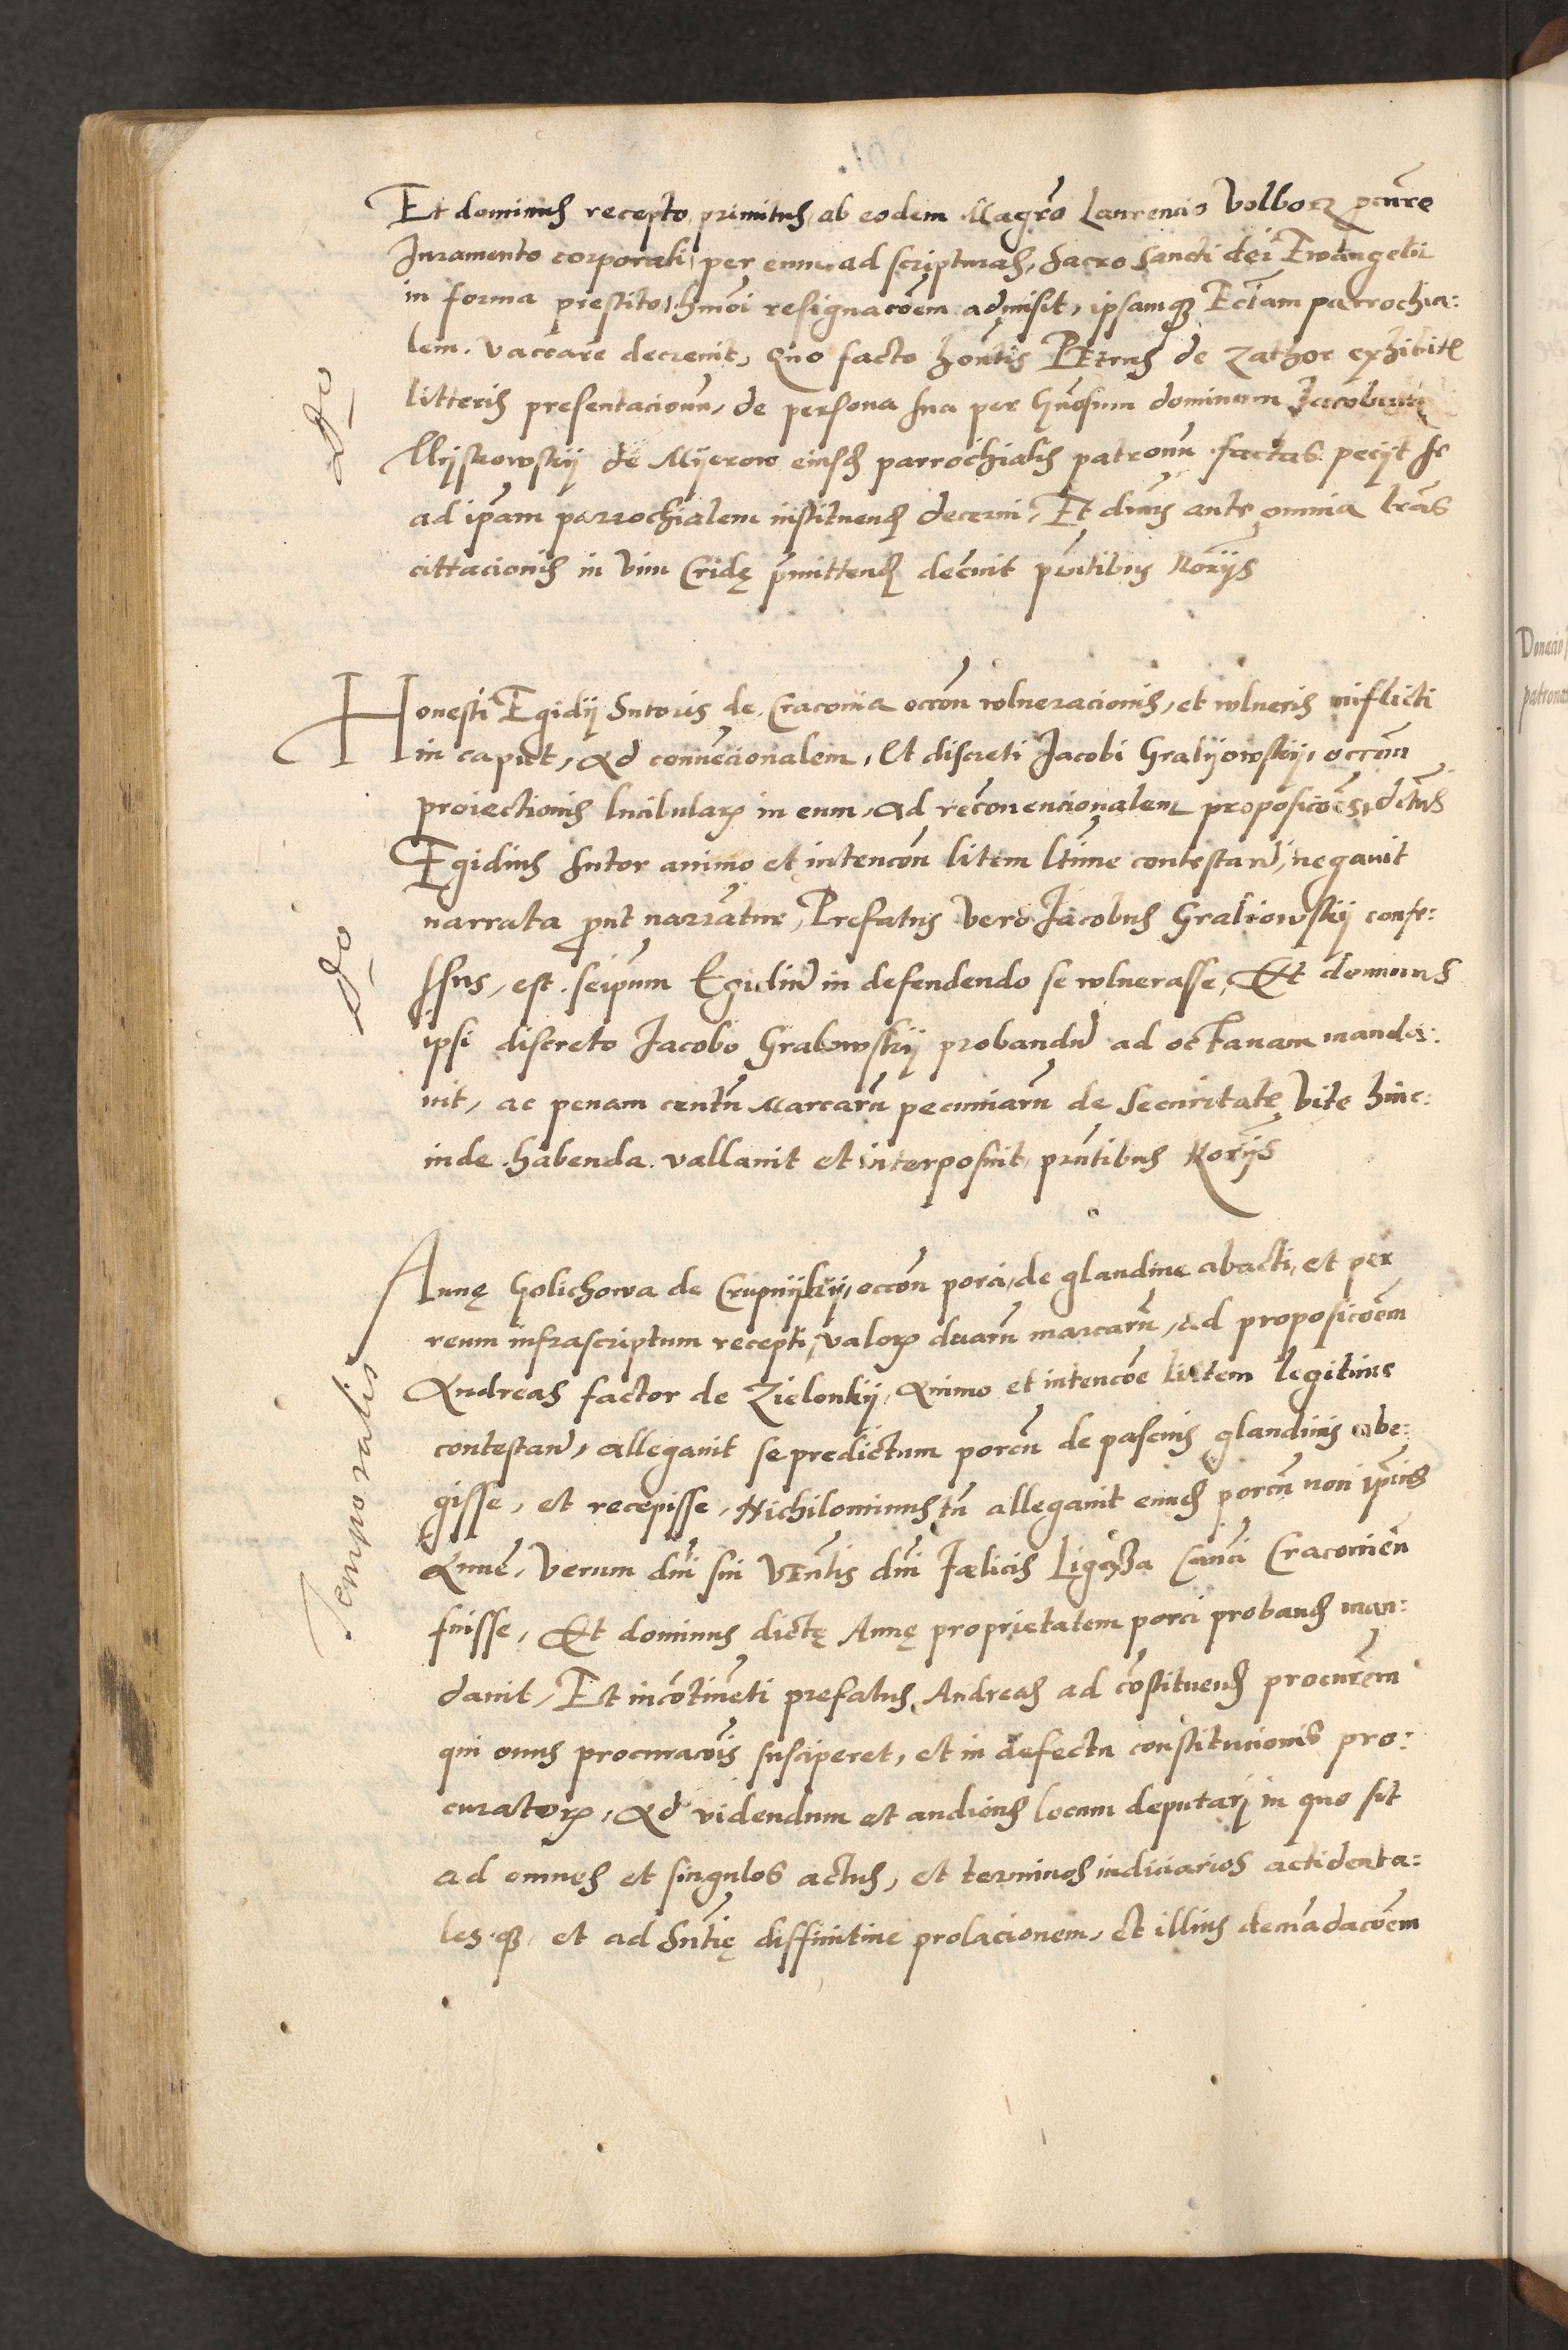 Et dominus recepto primitus ab eodem Magr̃o Laurencio Volborz pcurẽ
Juramento corporali per eum ad scripturas, sacro sancti dei Ewangelii
in forma prestito, hmõi resignacõem admisit, ipsamqȝ Ecc̃iam parrochia:
lem vaccare decrevit, Quo facto honẽtis Petrus de Zathor exhibitℓ
litteris presentacionum, de persona sua per Gn̄osum dominum Jacobum
Myskowskÿ de Myerow eiusdȝ parrochialis patronum factas pecÿt se
ad ip̃am parrochialem instituendȝ decerni, Et dñus ante omnia lr̃as
cittacionis in vim Cridę p̃mittendȝ decr̃vit pñtibus Norÿs
Honesti Egidÿ Sutoris de Cracovia occõn vulneracionis, et vulneris inflicti
in caput, Ad connẽcionalem, Et discreti Jacobi Gralÿowskÿ, occõn
proiectionis lucibularȝ in eum, Ad recõnvencionalem proposicões, dictus
Egidius sutor animo et intencõn litem ltĩme contestand̃, negavit
narrata prout narrãtur, Prefatus vero Jacobus Graliowskÿ confe:
ssus, est seipsum Egidiũ in defendendo se vulnerasse, Et dominus
ipsi discreto Jacobo Grabowskÿ probandũ ad octavam manda:
vit, ac penam centũ Marcarũ pecuniarũ de securitate vite hinc:
inde habenda vallavit et interposuit pñtibus Norÿs
Annę Golichowa de Crupnÿkÿ, occõn porci, de glandine abacti, et per
reum infrascriptum recepti, valorȝ duarũ marcarũ, ad proposicõem
Andreas factor de Zielonkÿ, Animo et intencõe litem legitime
contestand̃, allegavit se predictum porcũ de pascuis glandinis abe:
gisse, et recepisse, Nichilominus tñ allegavit eundȝ porcũ non ip̃ius
Annẽ, Verum dñi sui Vẽntis dñi Fælicis Ligȩza Cañci Cracoviẽn
fuisse, Et dominus dictę Annę proprietatem porci probandȝ man:
davit, Et incõtinẽti prefatus Andreas ad cõstituendȝ procurẽm
qui onus procuracõis susciperet, et in defectu constitucionis pro:
curatorȝ, Ad videndum et audiendȝ locum deputari in quo sit
ad omnes et singulos actus, et terminos iudiciarios accidenta:
lesqȝ, et ad sñtię diffinitive prolacionem, et illius demãdacõem
Temporalis
Donacio
patronat